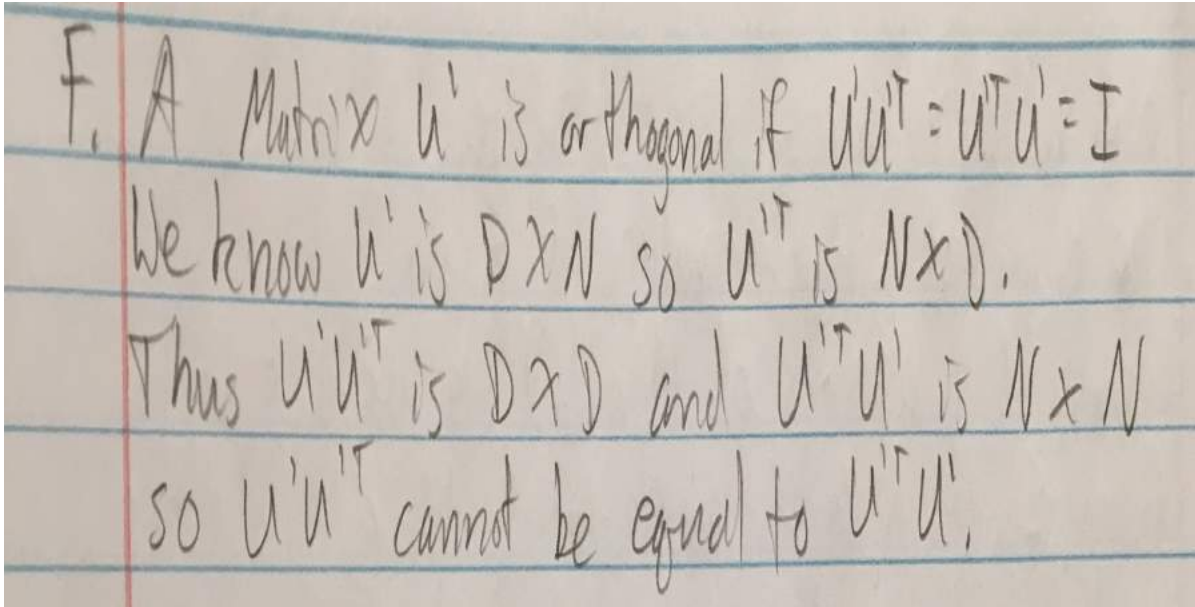 F. A Matrix U' is orthogonal if U'U'ᵀ = U'ᵀU' = I
We know U' is D×N so U'ᵀ is N×D.
Thus U'U'ᵀ is D×D and U'ᵀU' is N×N
so U'U'ᵀ cannot be equal to U'ᵀU'.